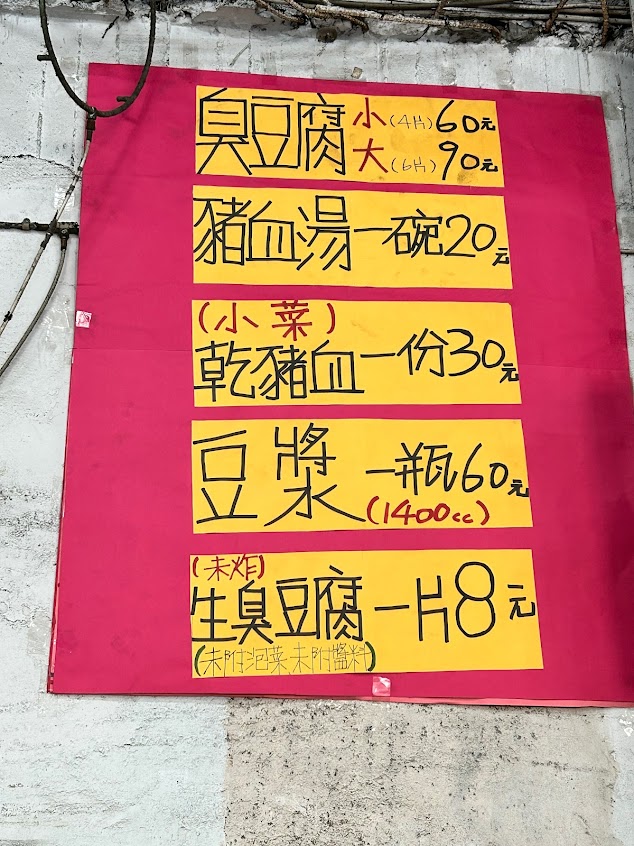 臭豆腐 小(4片)60元
大(6片)90元
豬血湯一碗20元
(小菜)
乾豬血一份30元
豆漿 一瓶60元
(1400cc)
(未炸)
生臭豆腐一片8元
(未附泡菜、未附醬料)